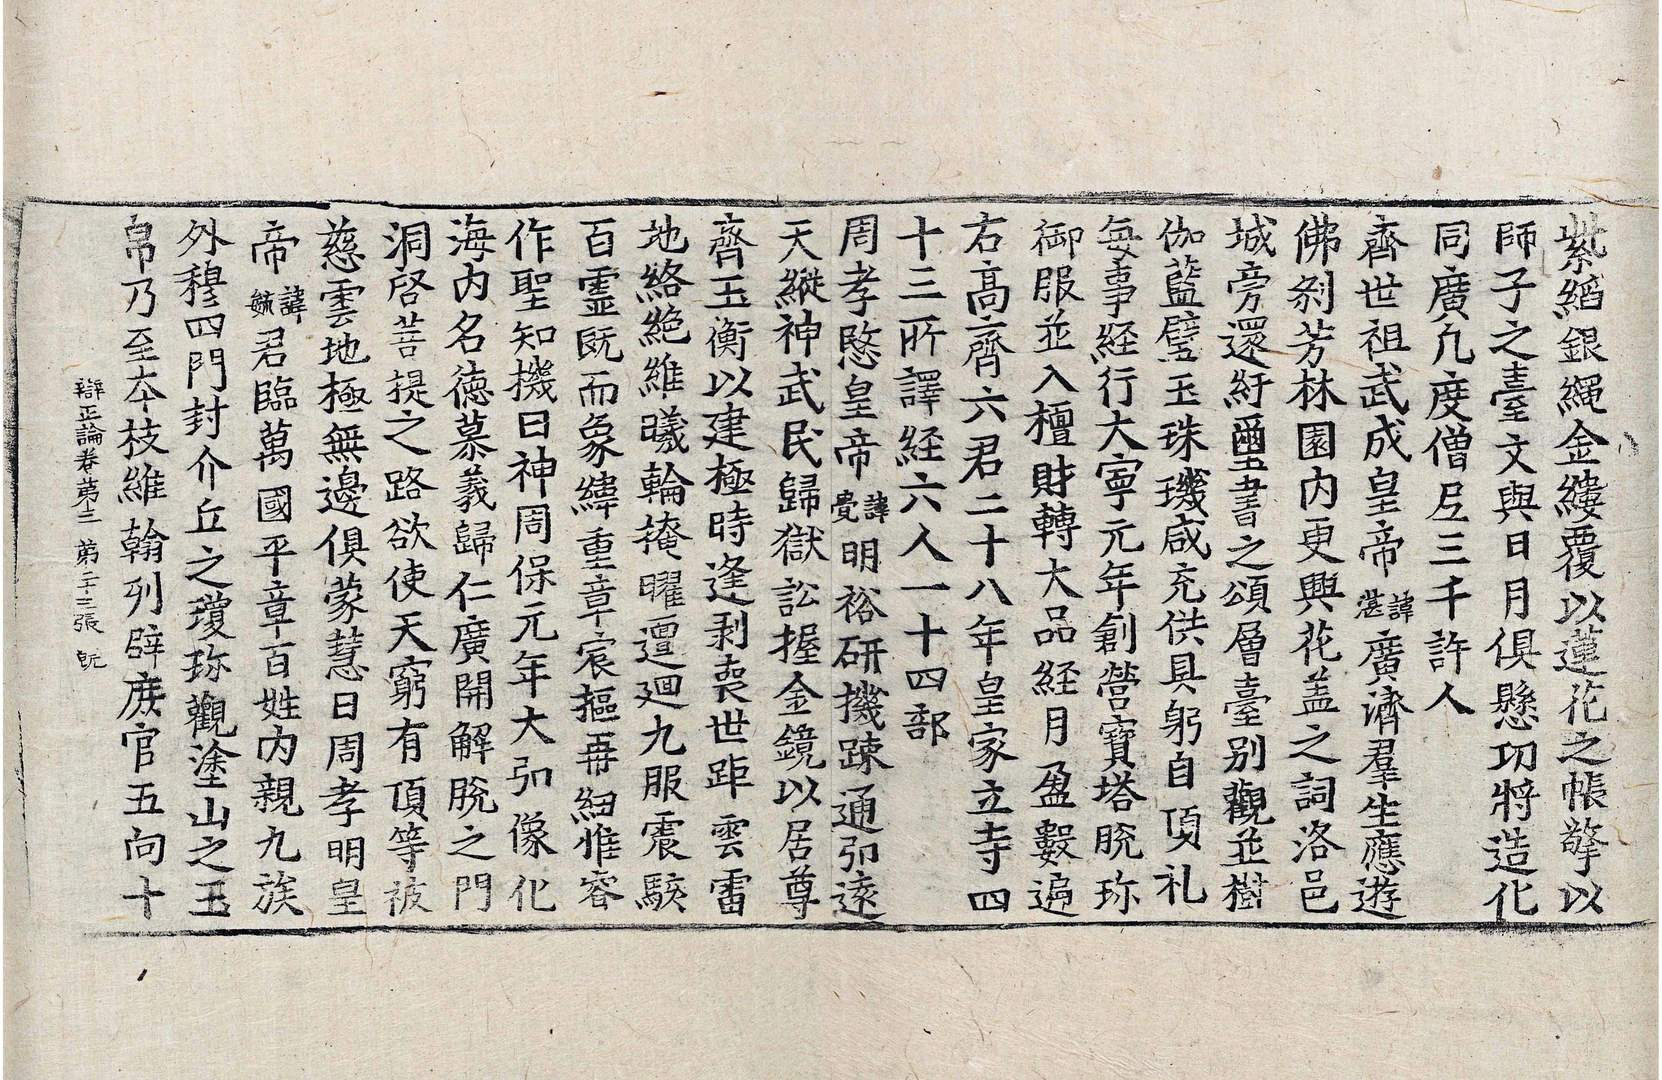 紫縚銀繩金縷覆以蓮花之帳擎以
師子之臺文與日月俱懸功將造化
同廣凡度僧尼三千許人
齊世祖武成皇帝諱湛廣濟羣生應遊
佛刹芳林園内更興花盖之詞洛邑
城旁還紆璽書之頌層臺別觀並樹
伽藍璧玉珠璣咸充供具躬自頂礼
每事経行大寜元年創營寶塔脱珎
御服並入檀財轉大品経月盈數遍
右高齊六君二十八年皇家立寺四
十三所譯経六人一十四部
周孝愍皇帝諱覺明裕研機踈通弘遠
天縱神武民歸獄訟握金鏡以居尊
齊玉衡以建極時逢剥喪世距雲雷
地絡絶維曦輪掩曜邅迴九服震駭
百靈旣而象緯重章宸摳再紐惟睿
作聖知機日神周保元年大弘像化
海内名德慕義歸仁廣開解脱之門
洞啓菩提之路欲使天窮有頂等被
慈雲地極無邊俱蒙慧日周孝明皇
帝諱毓君臨萬國平章百姓内親九族
外穆四門封介丘之瓊珎觀塗山之玉
帛乃至夲枝維翰列辟庻官五向十
辯正論卷第三 第二十三張 旣